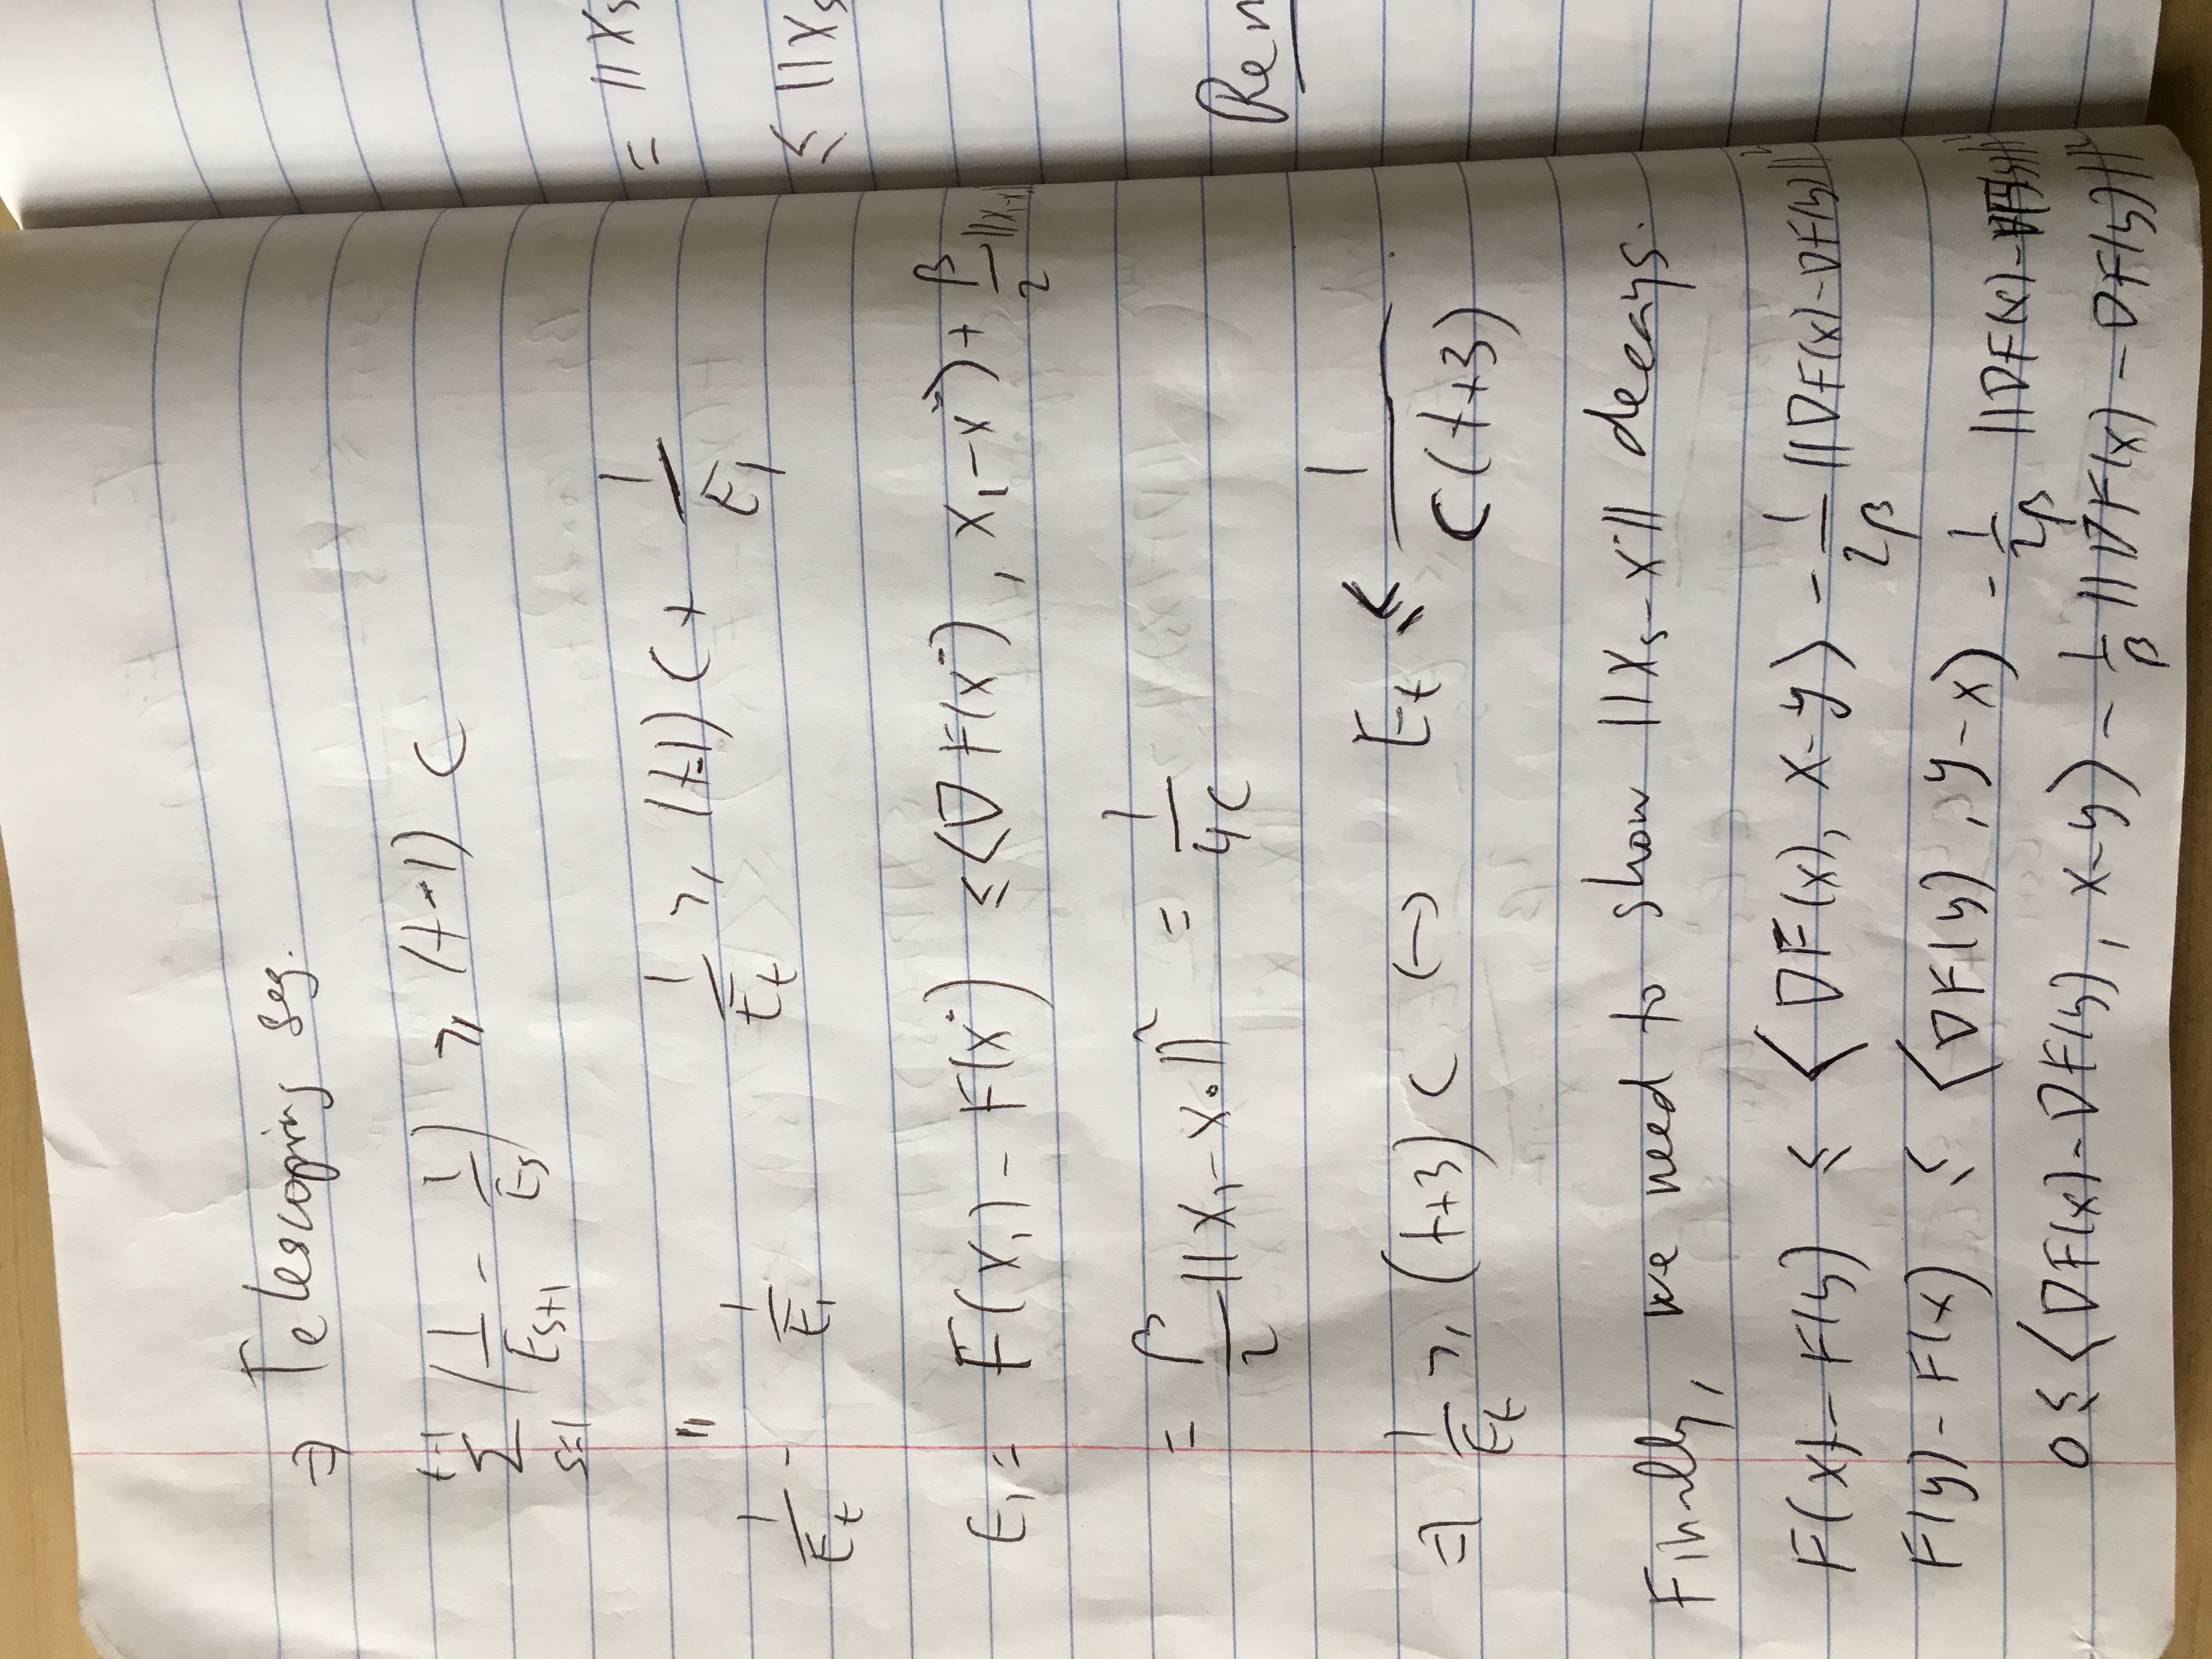 ⇒ Telescoping seq.
∑_{s=1}^{t-1} (1/E_{s+1} - 1/E_s) ≥ (t-1) C
"
1/E_t - 1/E_1    1/E_t ≥ (t-1) C + 1/E_1
E_1 = F(x_1) - F(x*) ≤ ⟨∇F(x*), x_1 - x*⟩ + β/2 ||x_1 - x
= β/2 ||x_1 - x_*||² = 1/4C
⇒ 1/E_t ≥ (t+3) C ↔ E_t ≤ 1/C(t+3).
Finally, we need to show ||x_s - x*|| decays.
F(x) - F(y) ≤ ⟨∇F(x), x-y⟩ - 1/2β ||∇F(x) - ∇F(y)||²
F(y) - F(x) ≤ ⟨∇F(y), y-x⟩ - 1/2β ||∇F(x) - ∇F(y)||²
0 ≤ ⟨∇F(x) - ∇F(y), x-y⟩ - 1/β ||∇F(x) - ∇F(y)||²
= ||x_s
≤ ||x_s
Rem